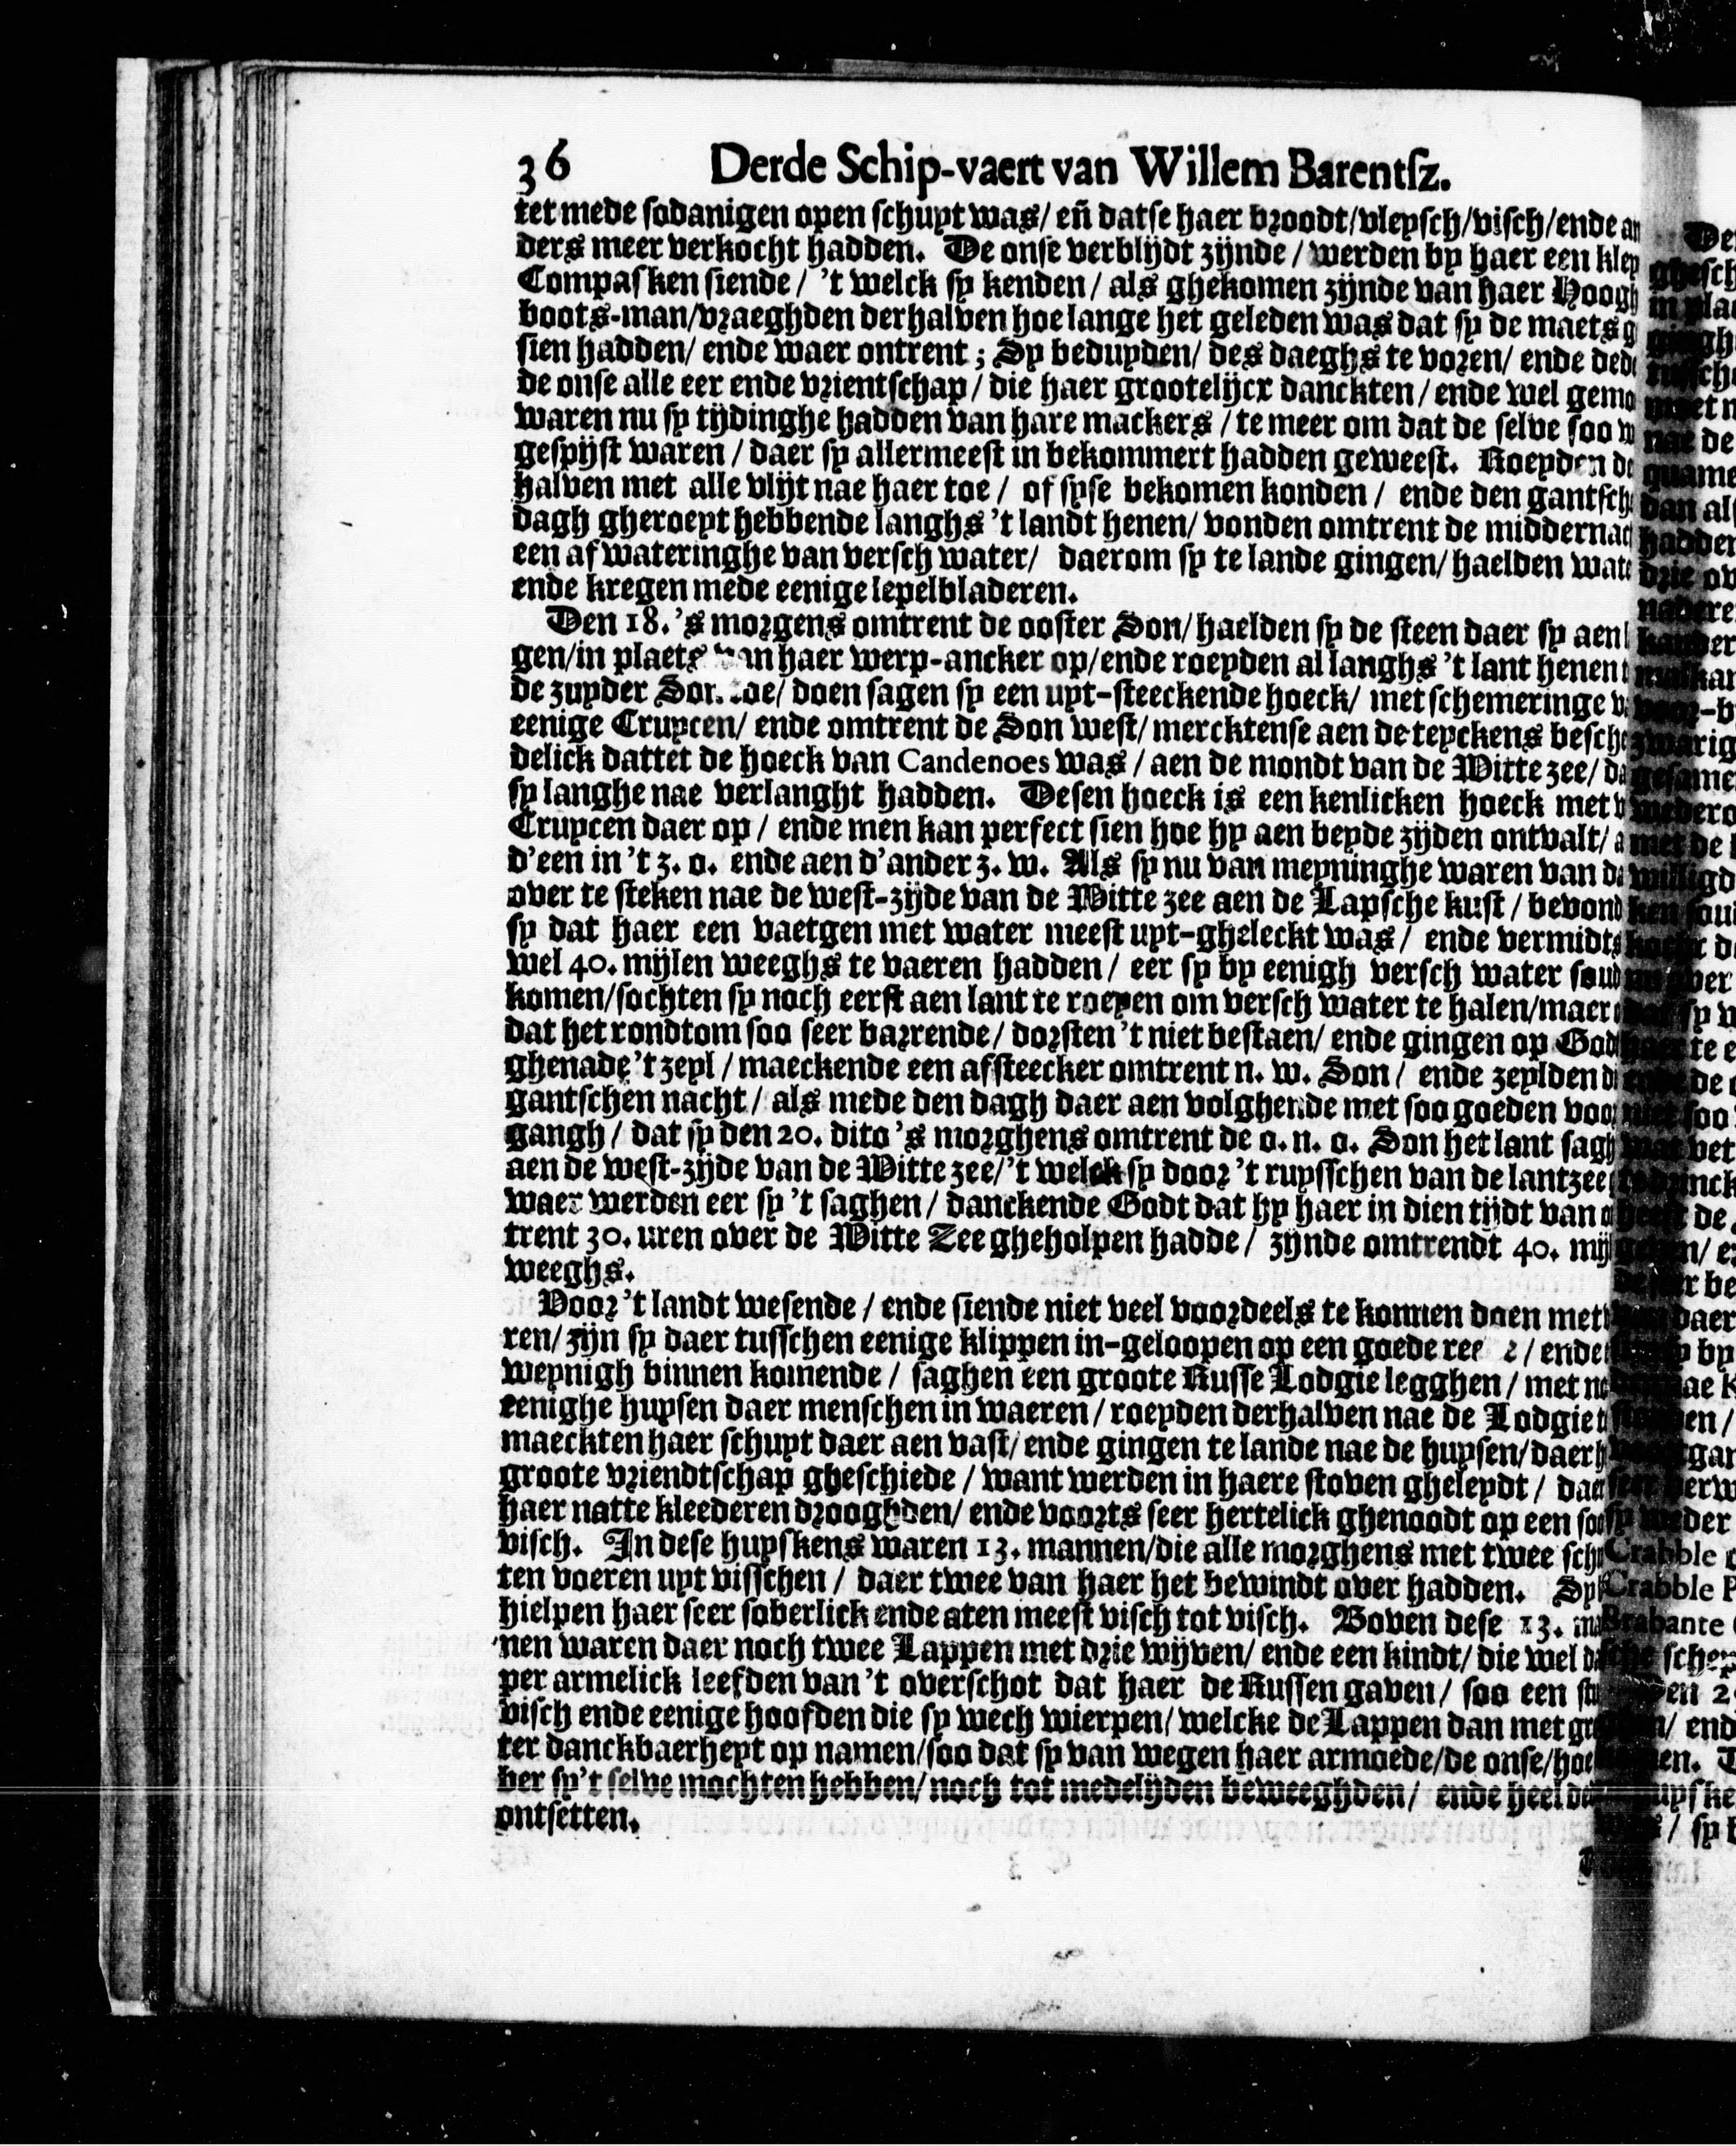 36 Derde Schip-vaert van Willem Barentsz.
tet mede sodanigen open schuyt was/ eñ datse haer broodt/vleysch/visch/ende an
ders meer verkocht hadden. De onse verblijdt zijnde / werden by haer een kley
Compasken siende / 't welck sy kenden / als ghekomen zijnde van haer Hoogh
boots-man/vraeghden derhalven hoe lange het geleden was dat sy de maets g
sien hadden/ ende waer ontrent ; Sy beduyden/ des daeghs te voren/ ende dede
de onse alle eer ende vrientschap / die haer grootelijcx danckten / ende wel gemo
waren nu sy tijdinghe hadden van hare mackers / te meer om dat de selve soo w
gespijst waren / daer sy allermeest in bekommert hadden geweest. Roeyden de
halven met alle vlijt nae haer toe / of syse bekomen konden / ende den gantsch
dagh gheroeyt hebbende langhs 't landt henen/ vonden omtrent de middernac
een afwateringhe van versch water/ daerom sy te lande gingen/ haelden wate
ende kregen mede eenige lepelbladeren.
Den 18. 's morgens omtrent de ooster Son/ haelden sy de steen daer sy aen
gen/in plaets van haer werp-ancker op/ende roeyden al langhs 't lant henen t
de zuyder Son toe/ doen sagen sy een uyt-steeckende hoeck/ met schemeringe v
eenige Cruycen/ ende omtrent de Son west/ mercktense aen de teyckens besche
delick dattet de hoeck van Candenoes was / aen de mondt van de Witte zee/ da
sy langhe nae verlanght hadden. Desen hoeck is een kenlicken hoeck met v
Cruycen daer op / ende men kan perfect sien hoe hy aen beyde zijden ontvalt/ a
d'een in 't z. o. ende aen d'ander z. w. Als sy nu van meyninghe waren van da
over te steken nae de west-zijde van de Witte zee aen de Lapsche kust / bevond
sy dat haer een vaetgen met water meest uyt-gheleckt was / ende vermidts
wel 40. mijlen weeghs te vaeren hadden / eer sy by eenigh versch water soud
komen/sochten sy noch eerst aen lant te roeyen om versch water te halen/maer
dat het rondtom soo seer barrende / dorsten 't niet bestaen/ ende gingen op God
ghenade 't zeyl / maeckende een afsteecker omtrent n. w. Son / ende zeylden di
gantschen nacht / als mede den dagh daer aen volghende met soo goeden voor
gangh / dat sy den 20. dito 's morghens omtrent de o. n. o. Son het lant sagh
aen de west-zijde van de Witte zee/ 't welck sy door 't ruysschen van de lantzee
waer werden eer sy 't saghen / danckende Godt dat hy haer in dien tijdt van o
trent 30. uren over de Witte Zee gheholpen hadde / zijnde omtrendt 40. mijl
weeghs.
Voor 't landt wesende / ende siende niet veel voordeels te konnen doen met
ren/ zijn sy daer tusschen eenige klippen in-geloopen op een goede / ende
weynigh binnen komende / saghen een groote Russe Lodgie legghen / met no
eenighe huysen daer menschen in waeren / roeyden derhalven nae de Lodgie t
maeckten haer schuyt daer aen vast/ ende gingen te lande nae de huysen/daer h
groote vriendtschap gheschiede / want werden in haere stoven gheleydt / daer
haer natte kleederen drooghden/ ende voorts seer hertelick ghenoodt op een soo
visch. In dese huyskens waren 13. mannen/die alle morghens met twee schu
ten voeren uyt visschen / daer twee van haer het bewindt over hadden. Sy
hielpen haer seer soberlick ende aten meest visch tot visch. Boven dese 13. ma
nen waren daer noch twee Lappen met drie wijven/ ende een kindt/ die wel da
per armelick leefden van 't overschot dat haer de Russen gaven / soo een stu
visch ende eenige hoofden die sy wech wierpen/ welcke de Lappen dan met gr
ter danckbaerheyt op namen/soo dat sy van wegen haer armoede/de onse/hoe
ber sy't selve mochten hebben/ noch tot medelijden beweeghden / ende heel da
ontsetten.